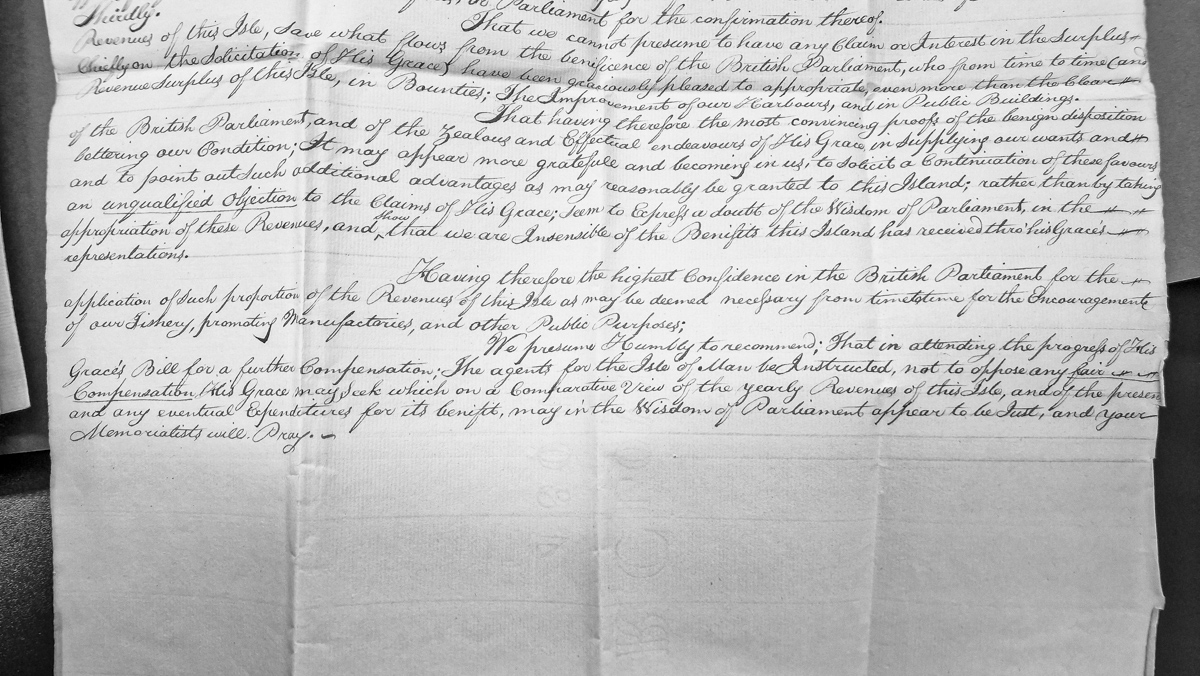 Parliament for the confirmation thereof.
Thirdly. That we cannot presume to have any Claim or Interest in the Surplus
Revenues of this Isle, save what flows from the beneficence of the British Parliament, who from time to time (and
Chiefly on the Solicitation of His Grace) have been graciously pleased to appropriate, even more than the Clear
Revenue Surplus of this Isle, in Bounties; The Improvement of our Harbours, and in Public Buildings.
That having therefore the most convincing proofs of the benign disposition
of the British Parliament, and of the Zealous and Effectual endeavours of His Grace, in supplying our wants and
bettering our Condition; It may appear more gratefull and becoming in us, to solicit a Continuation of these favours
and to point out such additional advantages as may reasonably be granted to this Island; rather than by taking
an unqualified Objection to the Claims of His Grace; seem to Express a doubt of the Wisdom of Parliament, in the
appropriation of these Revenues, and show that we are Insensible of the Benifits this Island has received thro' his Graces
representations.
Having therefore the highest Confidence in the British Parliament for the
application of such proportion of the Revenues of this Isle as may be deemed necessary from time to time for the Encouragement
of our Fishery, promoting Manufactories, and other Public Purposes;
We presume Humbly to recommend; That in attending the progress of His
Grace's Bill for a further Compensation; The agents for the Isle of Man be Instructed, not to oppose any fair
Compensation, His Grace may seek which on a Comparative View of the yearly Revenues of this Isle, and of the present
and any eventual Expenditures for its benifit, may in the Wisdom of Parliament appear to be Just, and your
Memorialists will Pray.